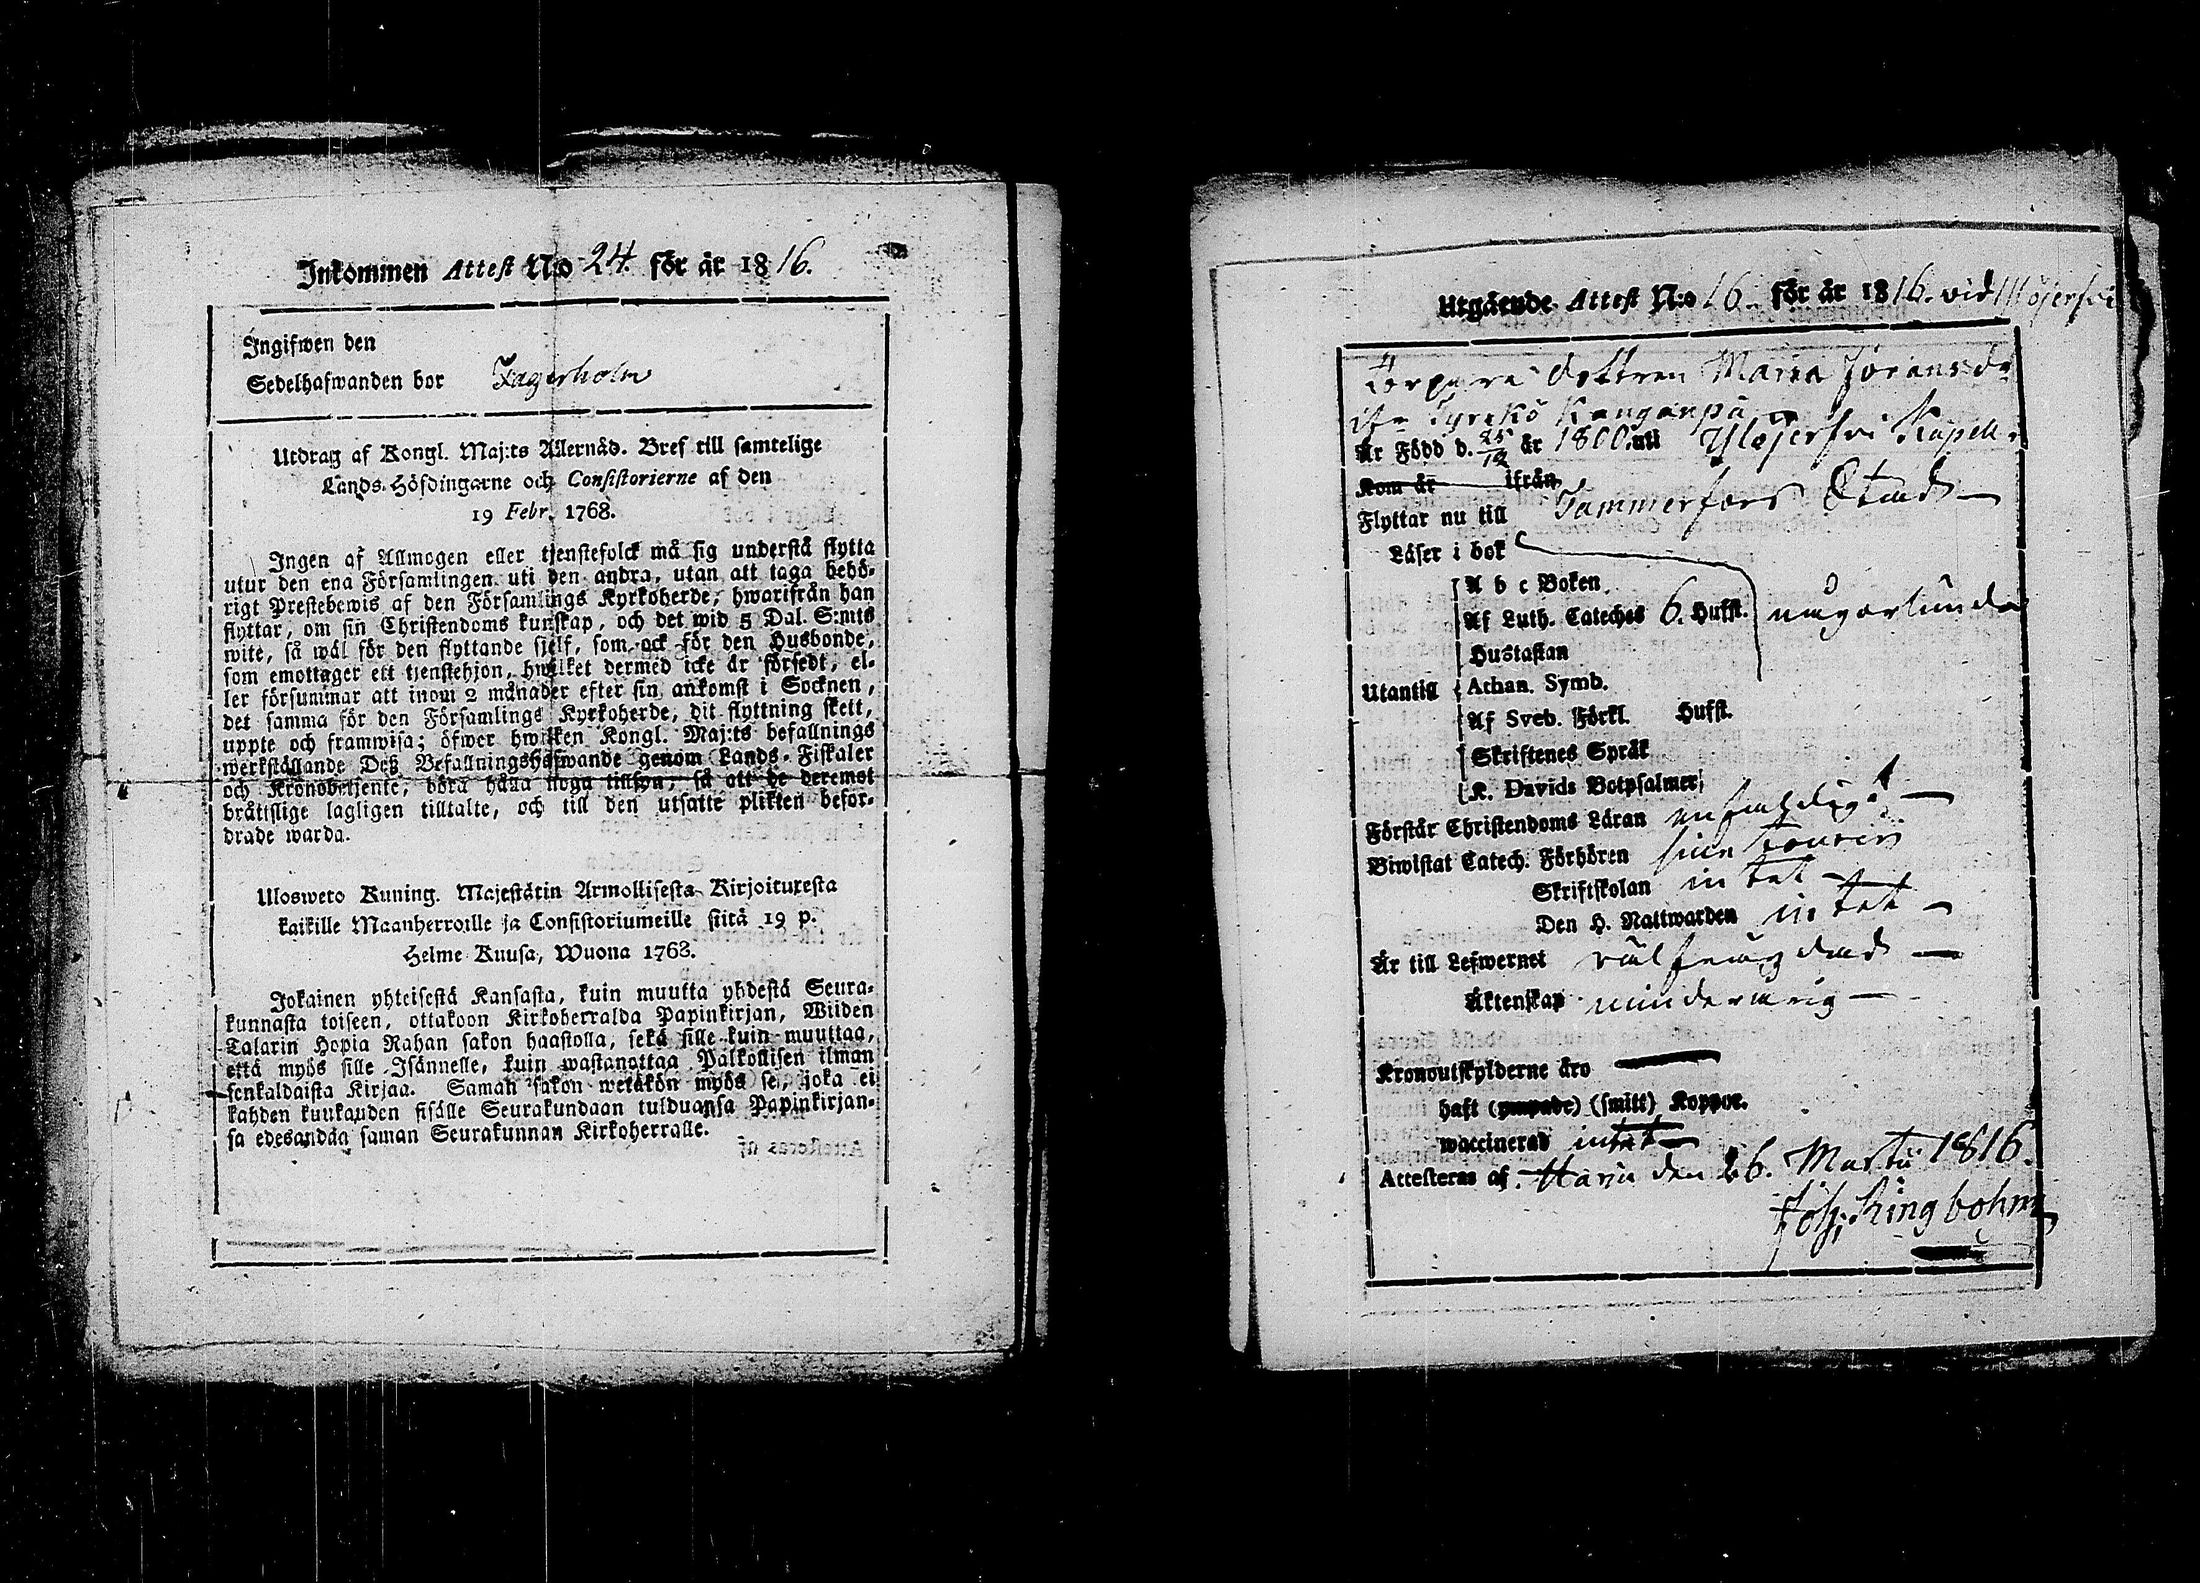 Inkommen Attest N:o 24. för år 1816.
Ingifwen den
Sedelhafwanden bor Fagerholm
Utdrag af Kongl. Maj:ts Allernåd. Bref till samtelige
Lands-Höfdingarne och Consistorierne af den
19 Febr. 1768.
Ingen af Allmogen eller tjenstefolck må sig understå flytta
utur den ena Församlingen uti den andra, utan att taga behö-
rigt Prestebewis af den Församlings Kyrkoherde, hwarifrån han
flyttar, om sin Christendoms kunskap, och det wid 5 Dal. S:mts
wite, så wäl för den flyttande sjelf, som ock för den Husbonde,
som emottager ett tjenstehjon, hwilket dermed icke är försedt, el-
ler försummar att inom 2 månader efter sin ankomst i Socknen,
det samma för den Församlings Kyrkoherde, dit flyttning skett,
uppte och framwisa; öfwer hwilken Kongl. Maj:ts befallnings
werkställande Deß Befallningshafwande genom Lands-Fiskaler
och Kronobetjente, böra hålla noga tillsyn, så att de deremot
bråttslige lagligen tilltalte, och till den utsatte plikten befor-
drade warda.
Ulosweto Kuning. Majestätin Armollisesta Kirjoituxesta
kaikille Maanherroille ja Consistoriumeille siitä 19 p.
Helme Kuusa, Wuona 1768.
Jokainen yhteisestä Kansasta, kuin muutta yhdestä Seura-
kunnasta toiseen, ottakoon Kirkoherralda Papinkirjan, Wiiden
Talarin Hopia Rahan sakon haastolla, sekä sille kuin muuttaa,
että myös sille Isännelle, kuin wastanottaa Palkollisen ilman
senkaldaista Kirjaa. Saman sakon wetäkön myös se, joka ei
kahden kuukauden sisälle Seurakundaan tulduansa Papinkirjan-
sa edesandaa saman Seurakunnan Kirkoherralle.
Utgående Attest N:o 16. för år 1816. vid Ylöjerfvi
Torpare dottren Maria Jöransdr
ifr. Tyrckö Kauganpä
Är Född d. 25/12 år 1800. uti Ylöjerfvi Kapell.
Kom år ifrån
Flyttar nu till Tammerfors Stad
Läser i bok
A b c Boken
Af Luth. Cateches 6. Hufst. någorlunda
Hustaflan
Utantill Athan. Symb.
Af Sveb. Förkl. Hufst.
Skriftenes Språk
K. Davids Botpsalmer
Förstår Christendoms Läran enfaldigt
Biwistat Catech. Förhören sine
Skriftskolan intet
Den H. Nattwarden intet
Är till Lefwernet välfrägdad
Äktenskap minderårig
Kronoutskylderne äro
haft (ympade) (smitt) Koppor.
waccinerad intet
Attesteras af Harju den 26. Martii 1816.
Joh: Ringbohm